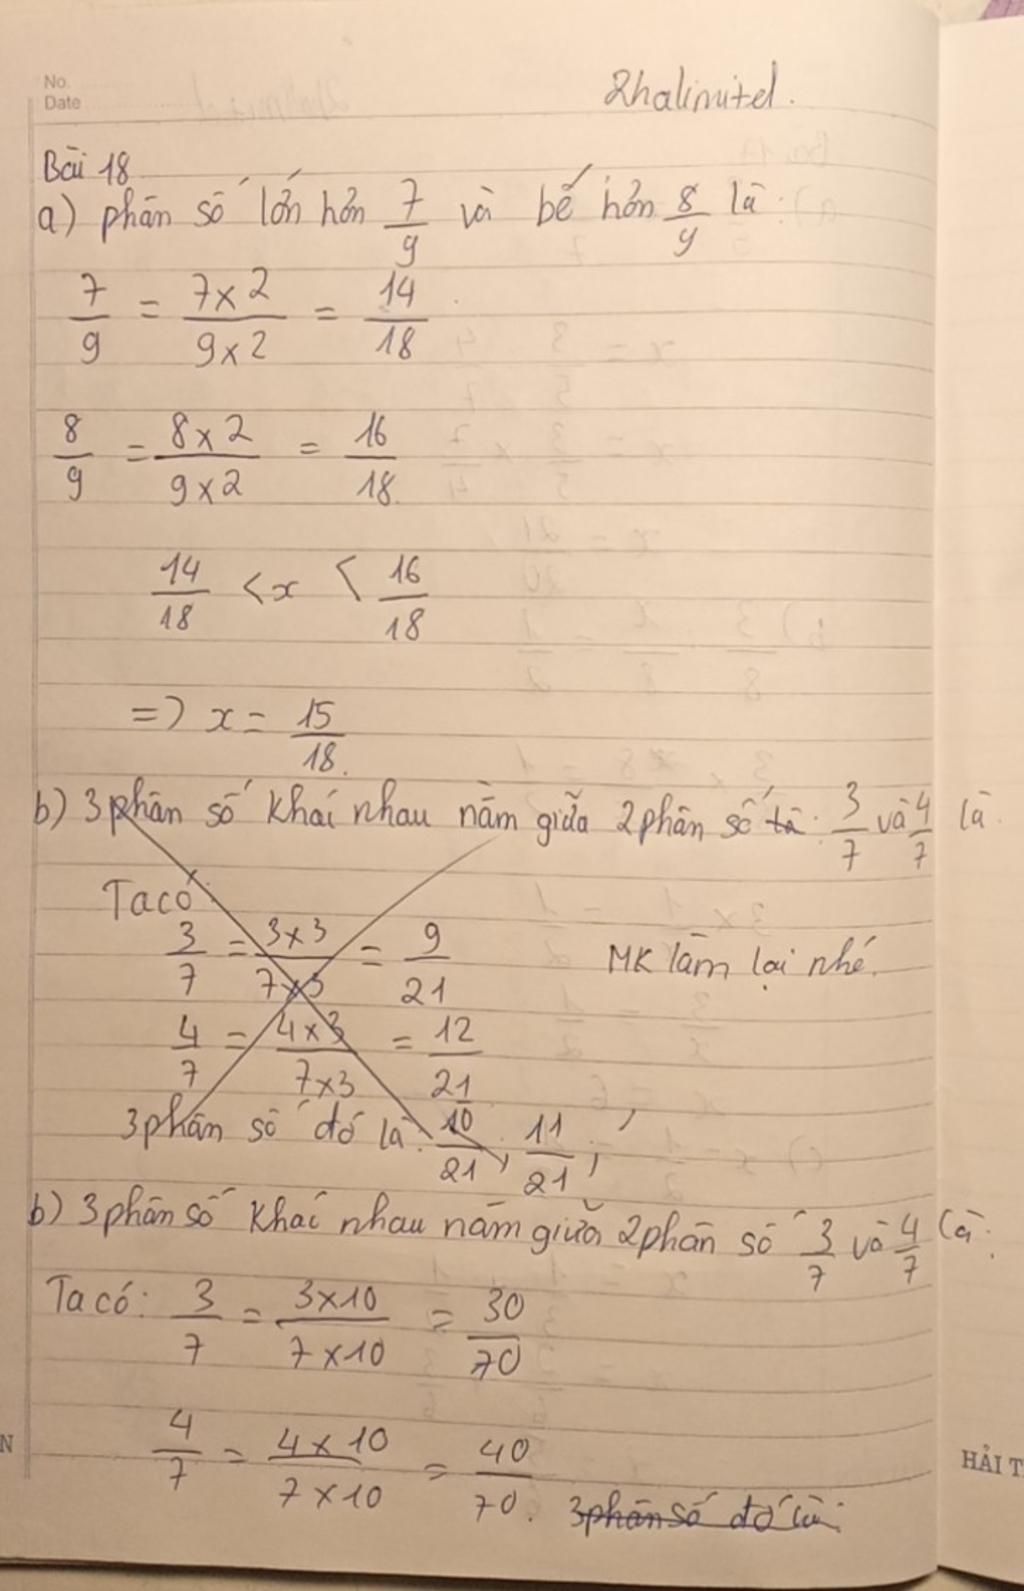 No.
Date
2halimited.
Bài 18
a) phân số lớn hơn 7/9 và bé hơn 8/9 là:
7/9 = 7x2/9x2 = 14/18
8/9 = 8x2/9x2 = 16/18.
14/18 < x < 16/18
=> x = 15/18.
b) 3 phân số khái nhau nằm giữa 2 phân số là: 3/7 và 4/7 là
Ta có:
3/7 = 3x3/7x3 = 9/21
MK làm lại nhé.
4/7 = 4x3/7x3 = 12/21
3 phân số đó là: 10/21, 11/21,
b) 3 phân số khái nhau nằm giữa 2 phân số 3/7 và 4/7 là:
Ta có: 3/7 = 3x10/7x10 = 30/70
4/7 = 4x10/7x10 = 40/70. 3 phân số đó là:
N
HẢI T